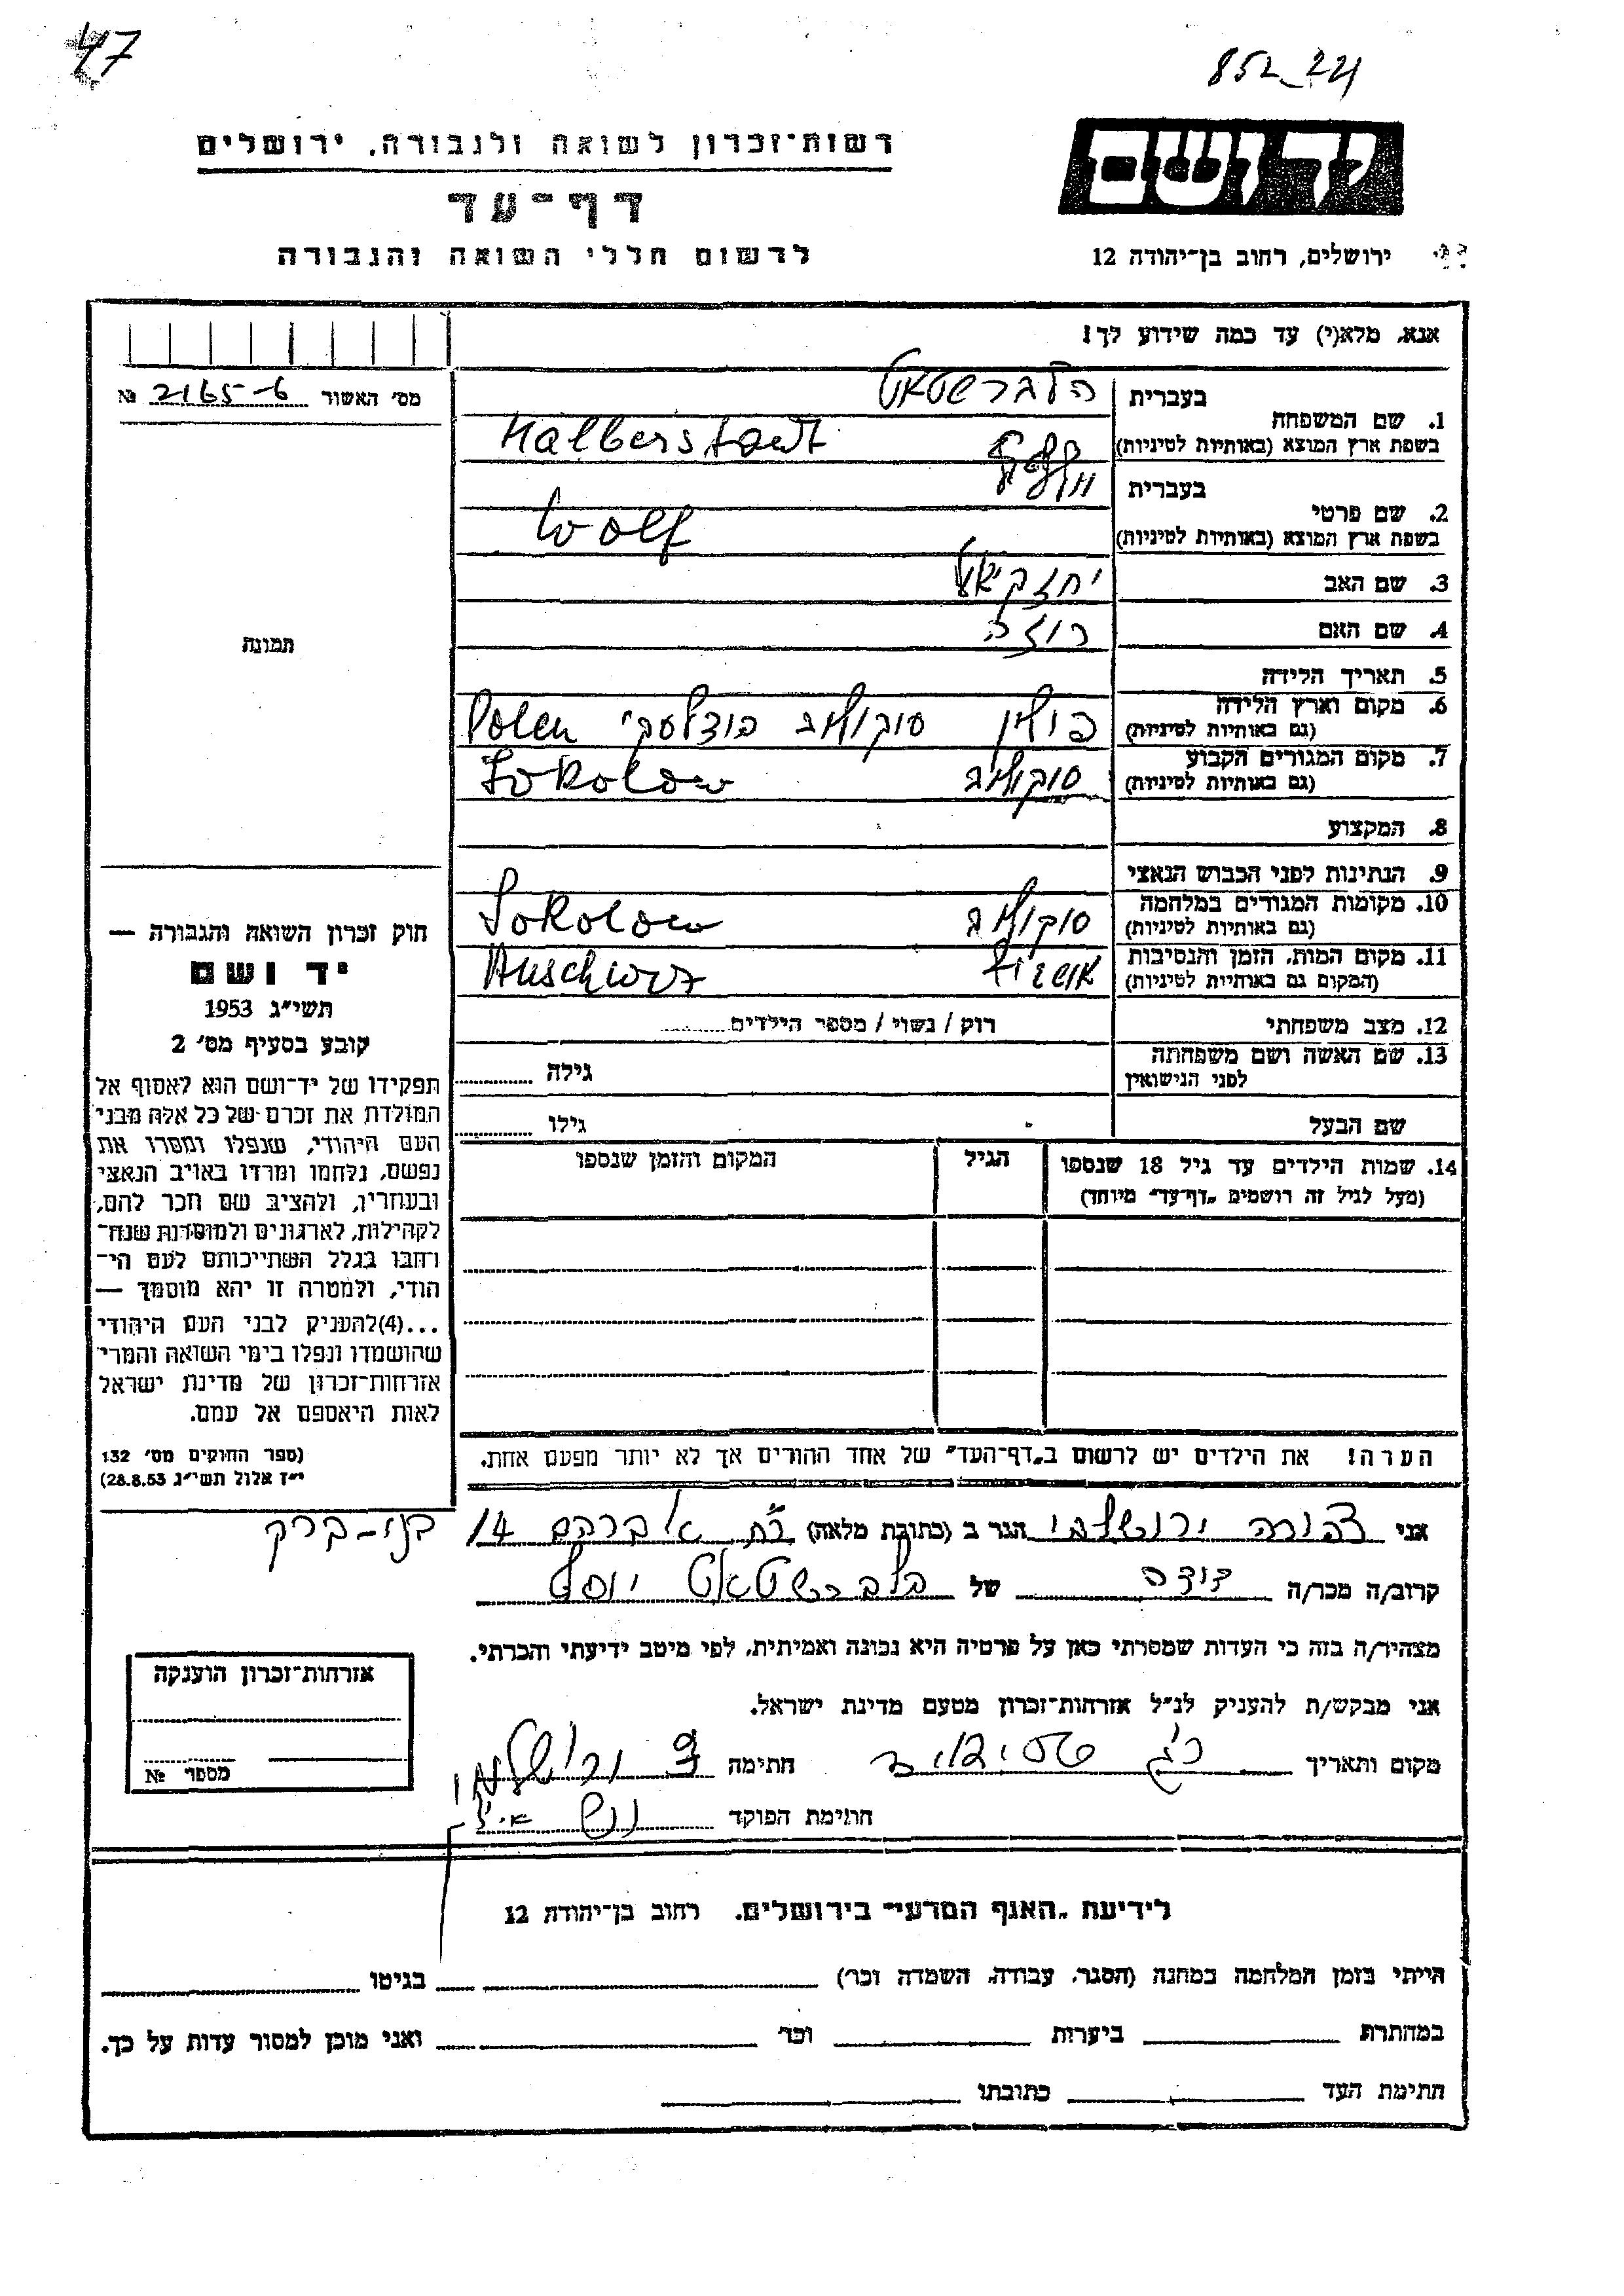 47
852-221
רשות־זכרון לשואה ולגבורה, ירושלים
יד ושם
דף־עד
לרשום חללי השואה והגבורה
ירושלים, רחוב בן־יהודה 12
אנא, מלא(י) עד כמה שידוע לך!
מס׳ האשור 2165-6 №
בעברית הלברשטאט
1. שם המשפחה
בשפת ארץ המוצא (באותיות לטיניות) Halberstadt
בעברית וולף
2. שם פרטי
בשפת ארץ המוצא (באותיות לטיניות) Wolf
3. שם האב יחזקיאל
4. שם האם רוזה
5. תאריך הלידה
6. מקום וארץ הלידה
(גם באותיות לטיניות) פולין סוקולוב פודלסקי Polen
7. מקום המגורים הקבוע
(גם באותיות לטיניות) סוקולוב Sokolow
8. המקצוע
9. הנתינות לפני הכבוש הנאצי
10. מקומות המגורים במלחמה
(גם באותיות לטיניות) סוקולוב Sokolow
11. מקום המות, הזמן והנסיבות
(המקום גם באותיות לטיניות) אושוויץ Auschwiz
12. מצב משפחתי רוק / נשוי / מספר הילדים
13. שם האשה ושם משפחתה
לפני הנישואין גילה
שם הבעל גילו
14. שמות הילדים עד גיל 18 שנספו הגיל המקום והזמן שנספו
(מעל לגיל זה רושמים „דף־עד״ מיוחד)
תמונה
חוק זכרון השואה והגבורה —
יד ושם
תשי״ג 1953
קובע בסעיף מס׳ 2
תפקידו של יד־ושם הוא לאסוף אל
המולדת את זכרם של כל אלה מבני
העם היהודי, שנפלו ומסרו את
נפשם, נלחמו ומרדו באויב הנאצי
ובעוזריו, ולהציב שם וזכר להם,
לקהילות, לארגונים ולמוסדות שנח־
רחבו בגלל השתייכותם לעם הי־
הודי, ולמטרה זו יהא מוסמך —
...(4)להעניק לבני העם היהודי
שהושמדו ונפלו בימי השואה והמרי
אזרחות־זכרון של מדינת ישראל
לאות היאספם אל עמם.
(ספר החוקים מס׳ 132
י״ז אלול תשי״ג 28.8.53)
הערה! את הילדים יש לרשום ב„דף־העד״ של אחד ההורים אך לא יותר מפעם אחת.
אני צפורה ירושלמי הגר ב (כתובת מלאה) אברהם 14 בני-ברק
קרוב/ה מכר/ה דודה של הלברשטאט יוסף
מצהיר/ה בזה כי העדות שמסרתי כאן על פרטיה היא נכונה ואמיתית, לפי מיטב ידיעתי והכרתי.
אני מבקש/ת להעניק לנ״ל אזרחות־זכרון מטעם מדינת ישראל.
מקום ותאריך חתימה צ ירושלמי
חתימת הפוקד
אזרחות־זכרון הוענקה
מספר №
לידיעת „האגף המדעי״ בירושלים. רחוב בן־יהודה 12
הייתי בזמן המלחמה במחנה (הסגר, עבודה, השמדה וכו׳) בגיטו
במחתרת ביערות וכו׳ ואני מוכן למסור עדות על כך.
חתימת העד כתובתו